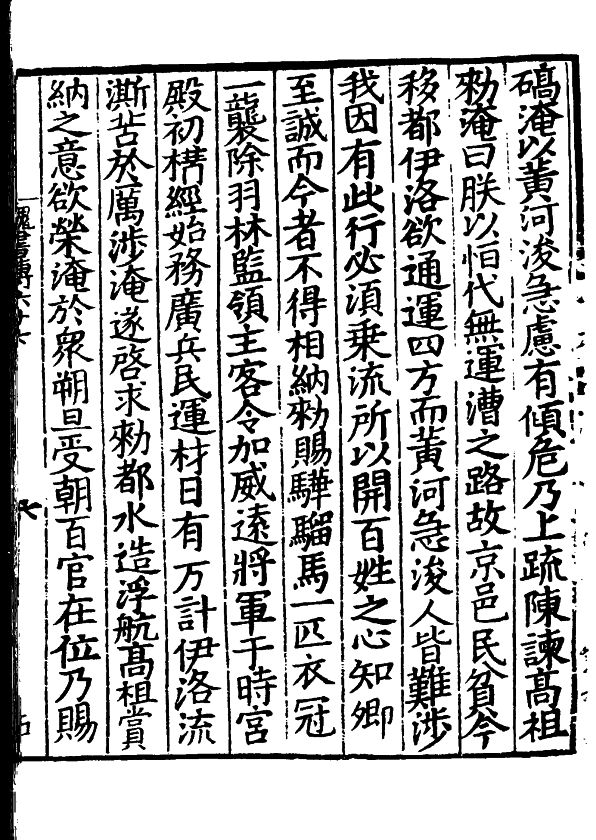 碻淹以黃河浚急慮有傾危乃上疏陳諫髙祖
勑淹曰朕以恒代無運漕之路故京邑民貧今
移都伊洛欲通運四方而黃河急浚人皆難涉
我因有此行必須乗流所以開百姓之心知卿
至誠而今者不得相納勑賜驊騮馬一匹衣冠
一襲除羽林監領主客令加威逺將軍于時宮
殿初構經始務廣兵民運材日有万計伊洛流
澌苦於厲涉淹遂啓求勑都水造浮航髙祖賞
納之意欲榮淹於衆朔旦受朝百官在位乃賜